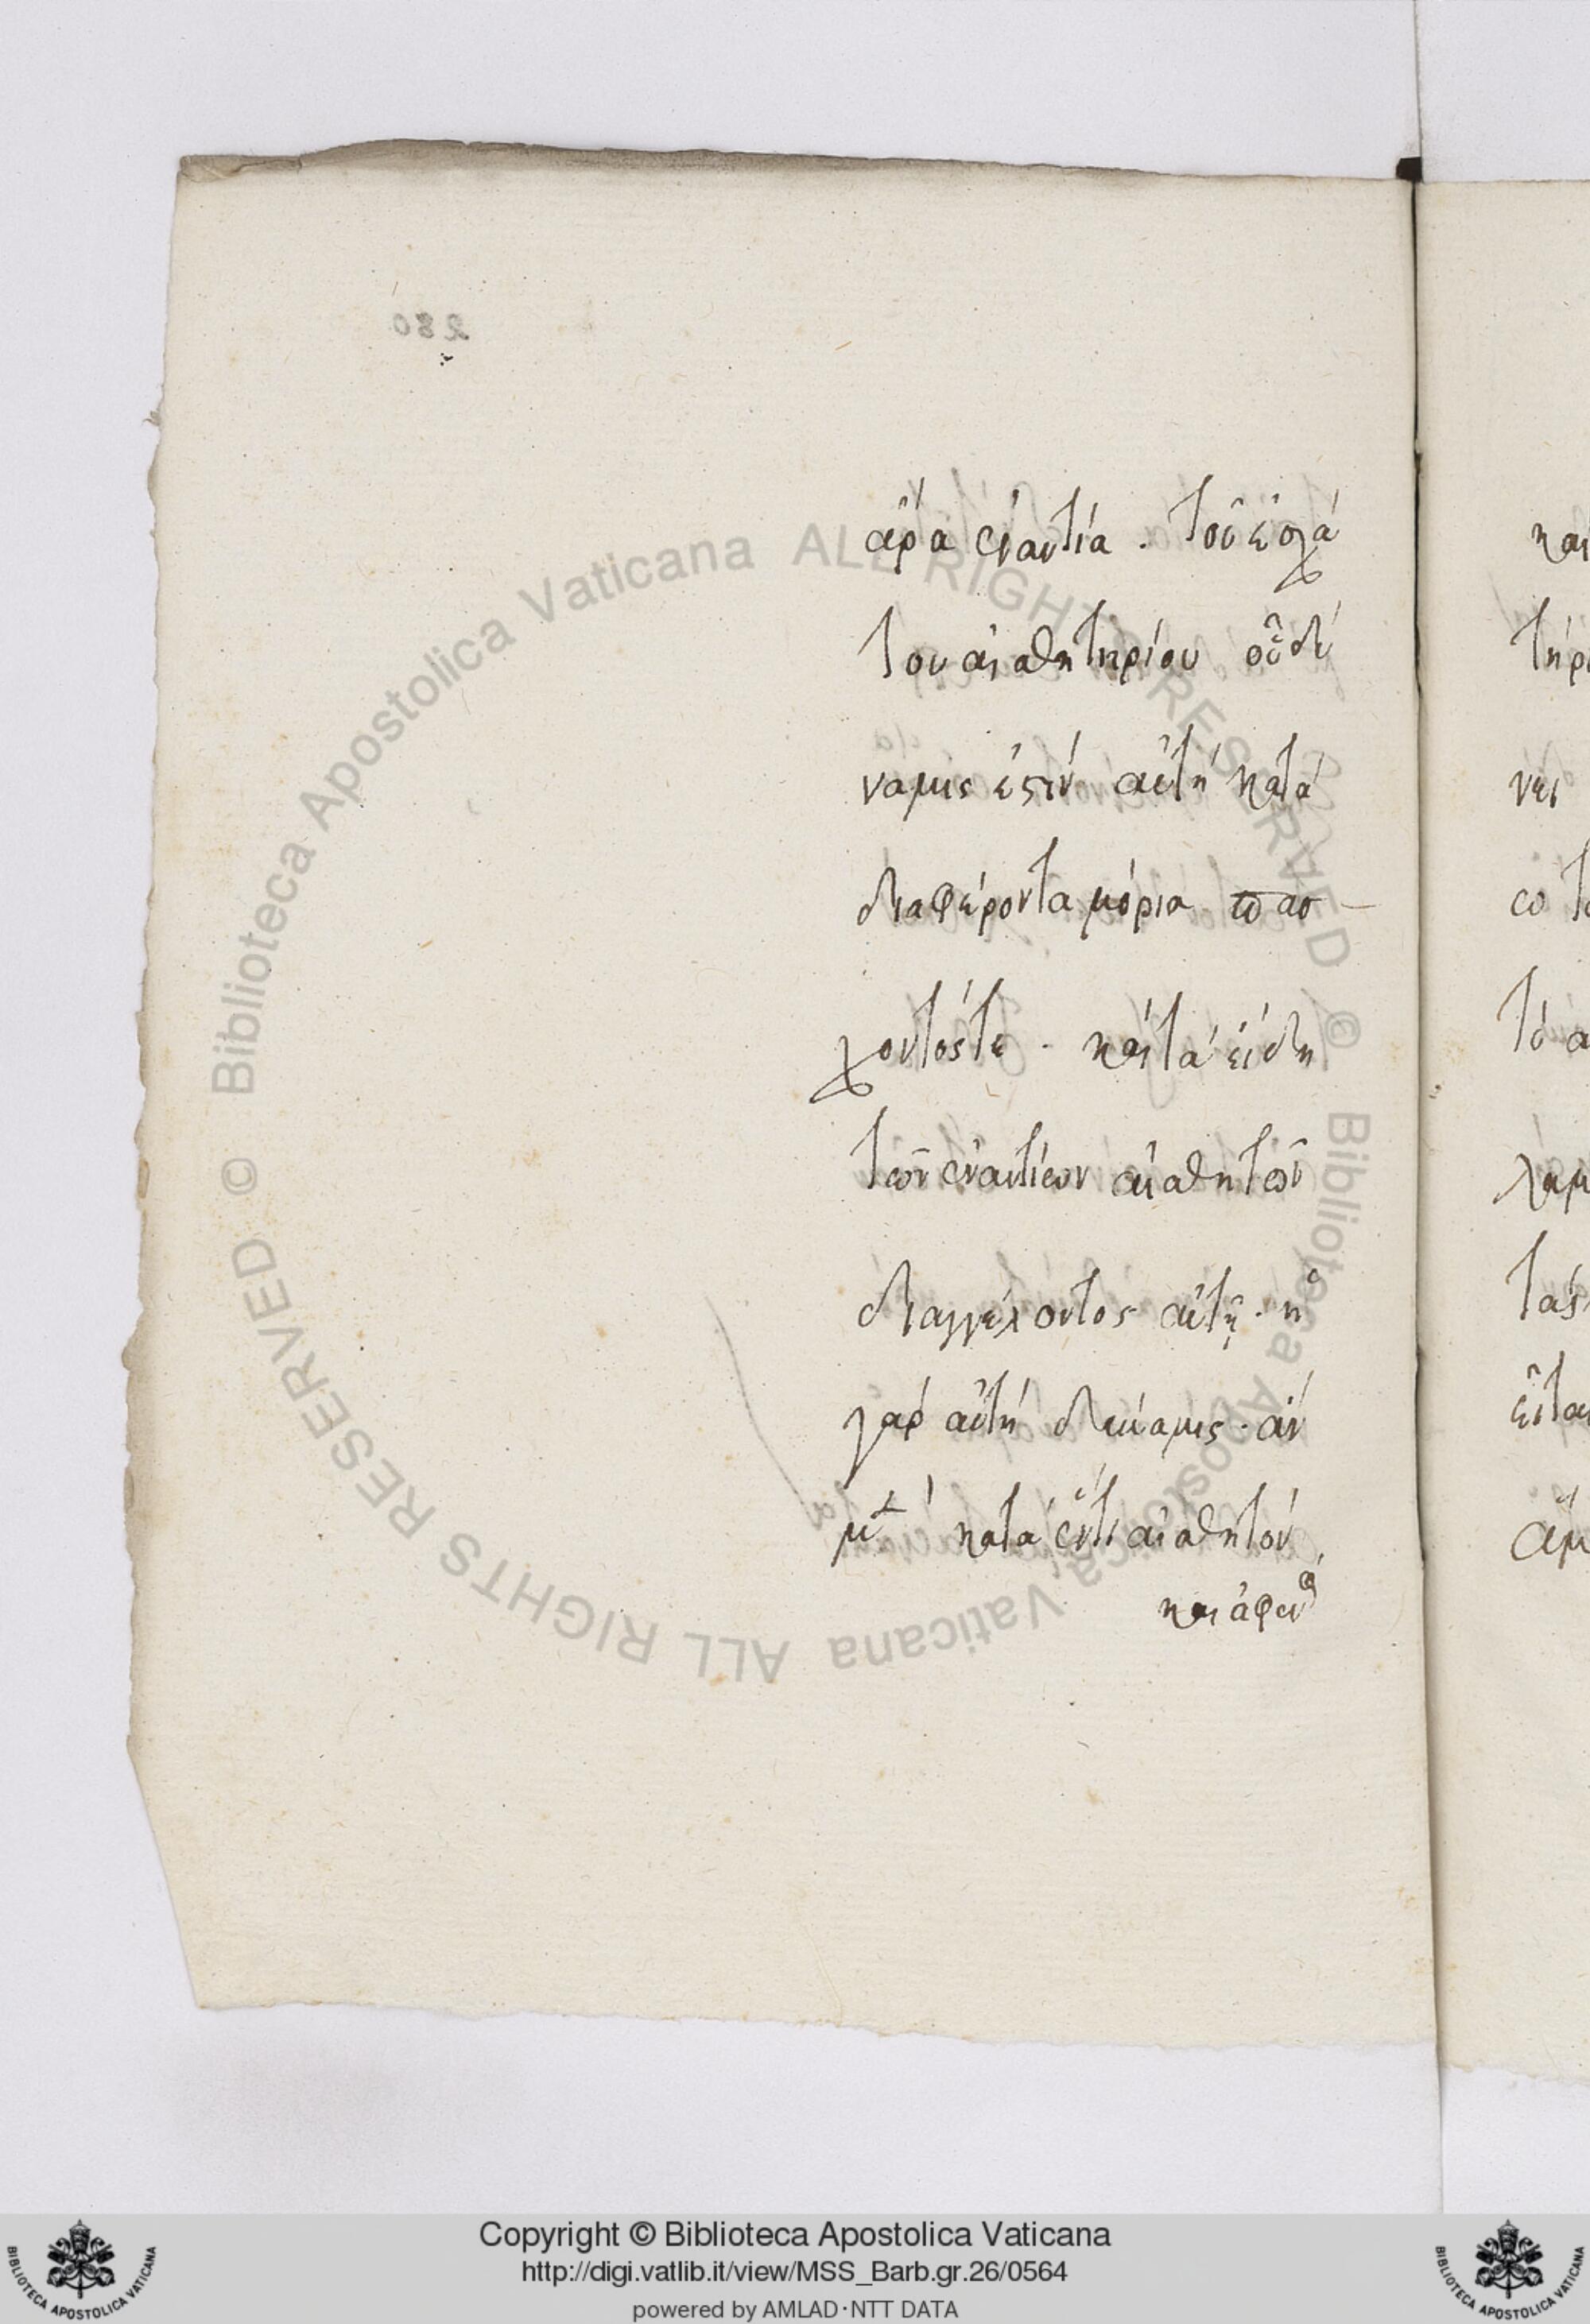 280
ἄρα ἐναντία. τοῦ ἐσχά
του αἰσθητηρίου οὗ δύ
ναμις ἐστὶν αὐτὴ κατὰ
διαφέροντα μόρια πασ-
χοντός τε. καὶ τὰ εἴδη
τῶν ἐναντίων αἰσθητῶν
διαγγέλοντος αὐτῇ. ἡ
γὰρ αὐτὴ δύναμις. ἂν
μὲν κατὰ ἕν τι αἰσθητὸν
και
τηρι
νει
σο το
το α
λαμ
τας
ειται
αμ
Biblioteca Apostolica Vaticana ALL RIGHTS RESERVED ©
Biblioteca Apostolica Vaticana ALL RIGHTS RESERVED ©
Copyright © Biblioteca Apostolica Vaticana
http://digi.vatlib.it/view/MSS_Barb.gr.26/0564
powered by AMLAD·NTT DATA
BIBLIOTECA APOSTOLICA VATICANA
BIBLIOTECA APOSTOLICA VATICANA